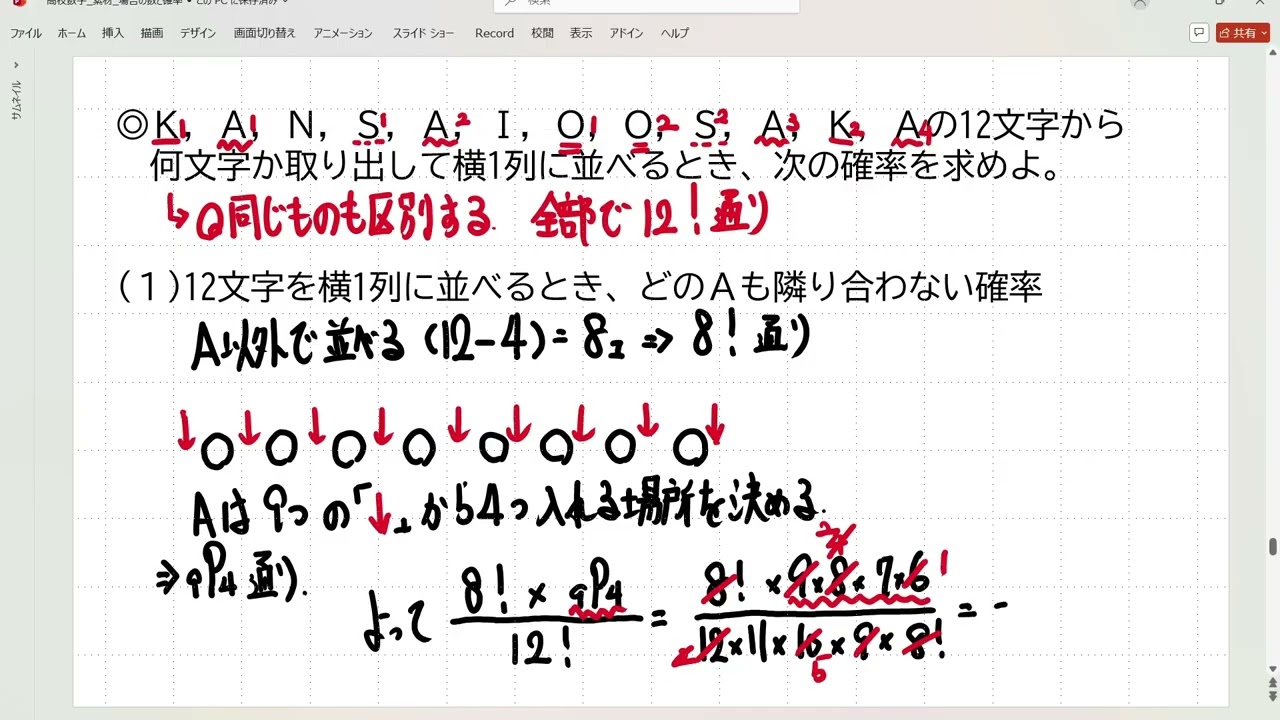 高校数学_素材_場合の数と確率 • この PC に保存済み
検索
ファイル ホーム 挿入 描画 デザイン 画面切り替え アニメーション スライド ショー Record 校閲 表示 アドイン ヘルプ 共有
サムネイル
◎K1, A1, N, S1, A2, I, O1, O2, S2, A3, K2, A4の12文字から
何文字か取り出して横1列に並べるとき、次の確率を求めよ。
↳◎同じものも区別する. 全部で12!通り
(1)12文字を横1列に並べるとき、どのAも隣り合わない確率
A以外で並べる (12-4)=8コ ⇒ 8! 通り
↓○↓○↓○↓○↓○↓○↓○↓○↓
Aは9つの「↓」から4つ入れる場所を決める.
⇒ 9P4 通り.
よって 8!×9P4/12! = 8!×9×8×7×6/12×11×10×9×8! =
2 5 1